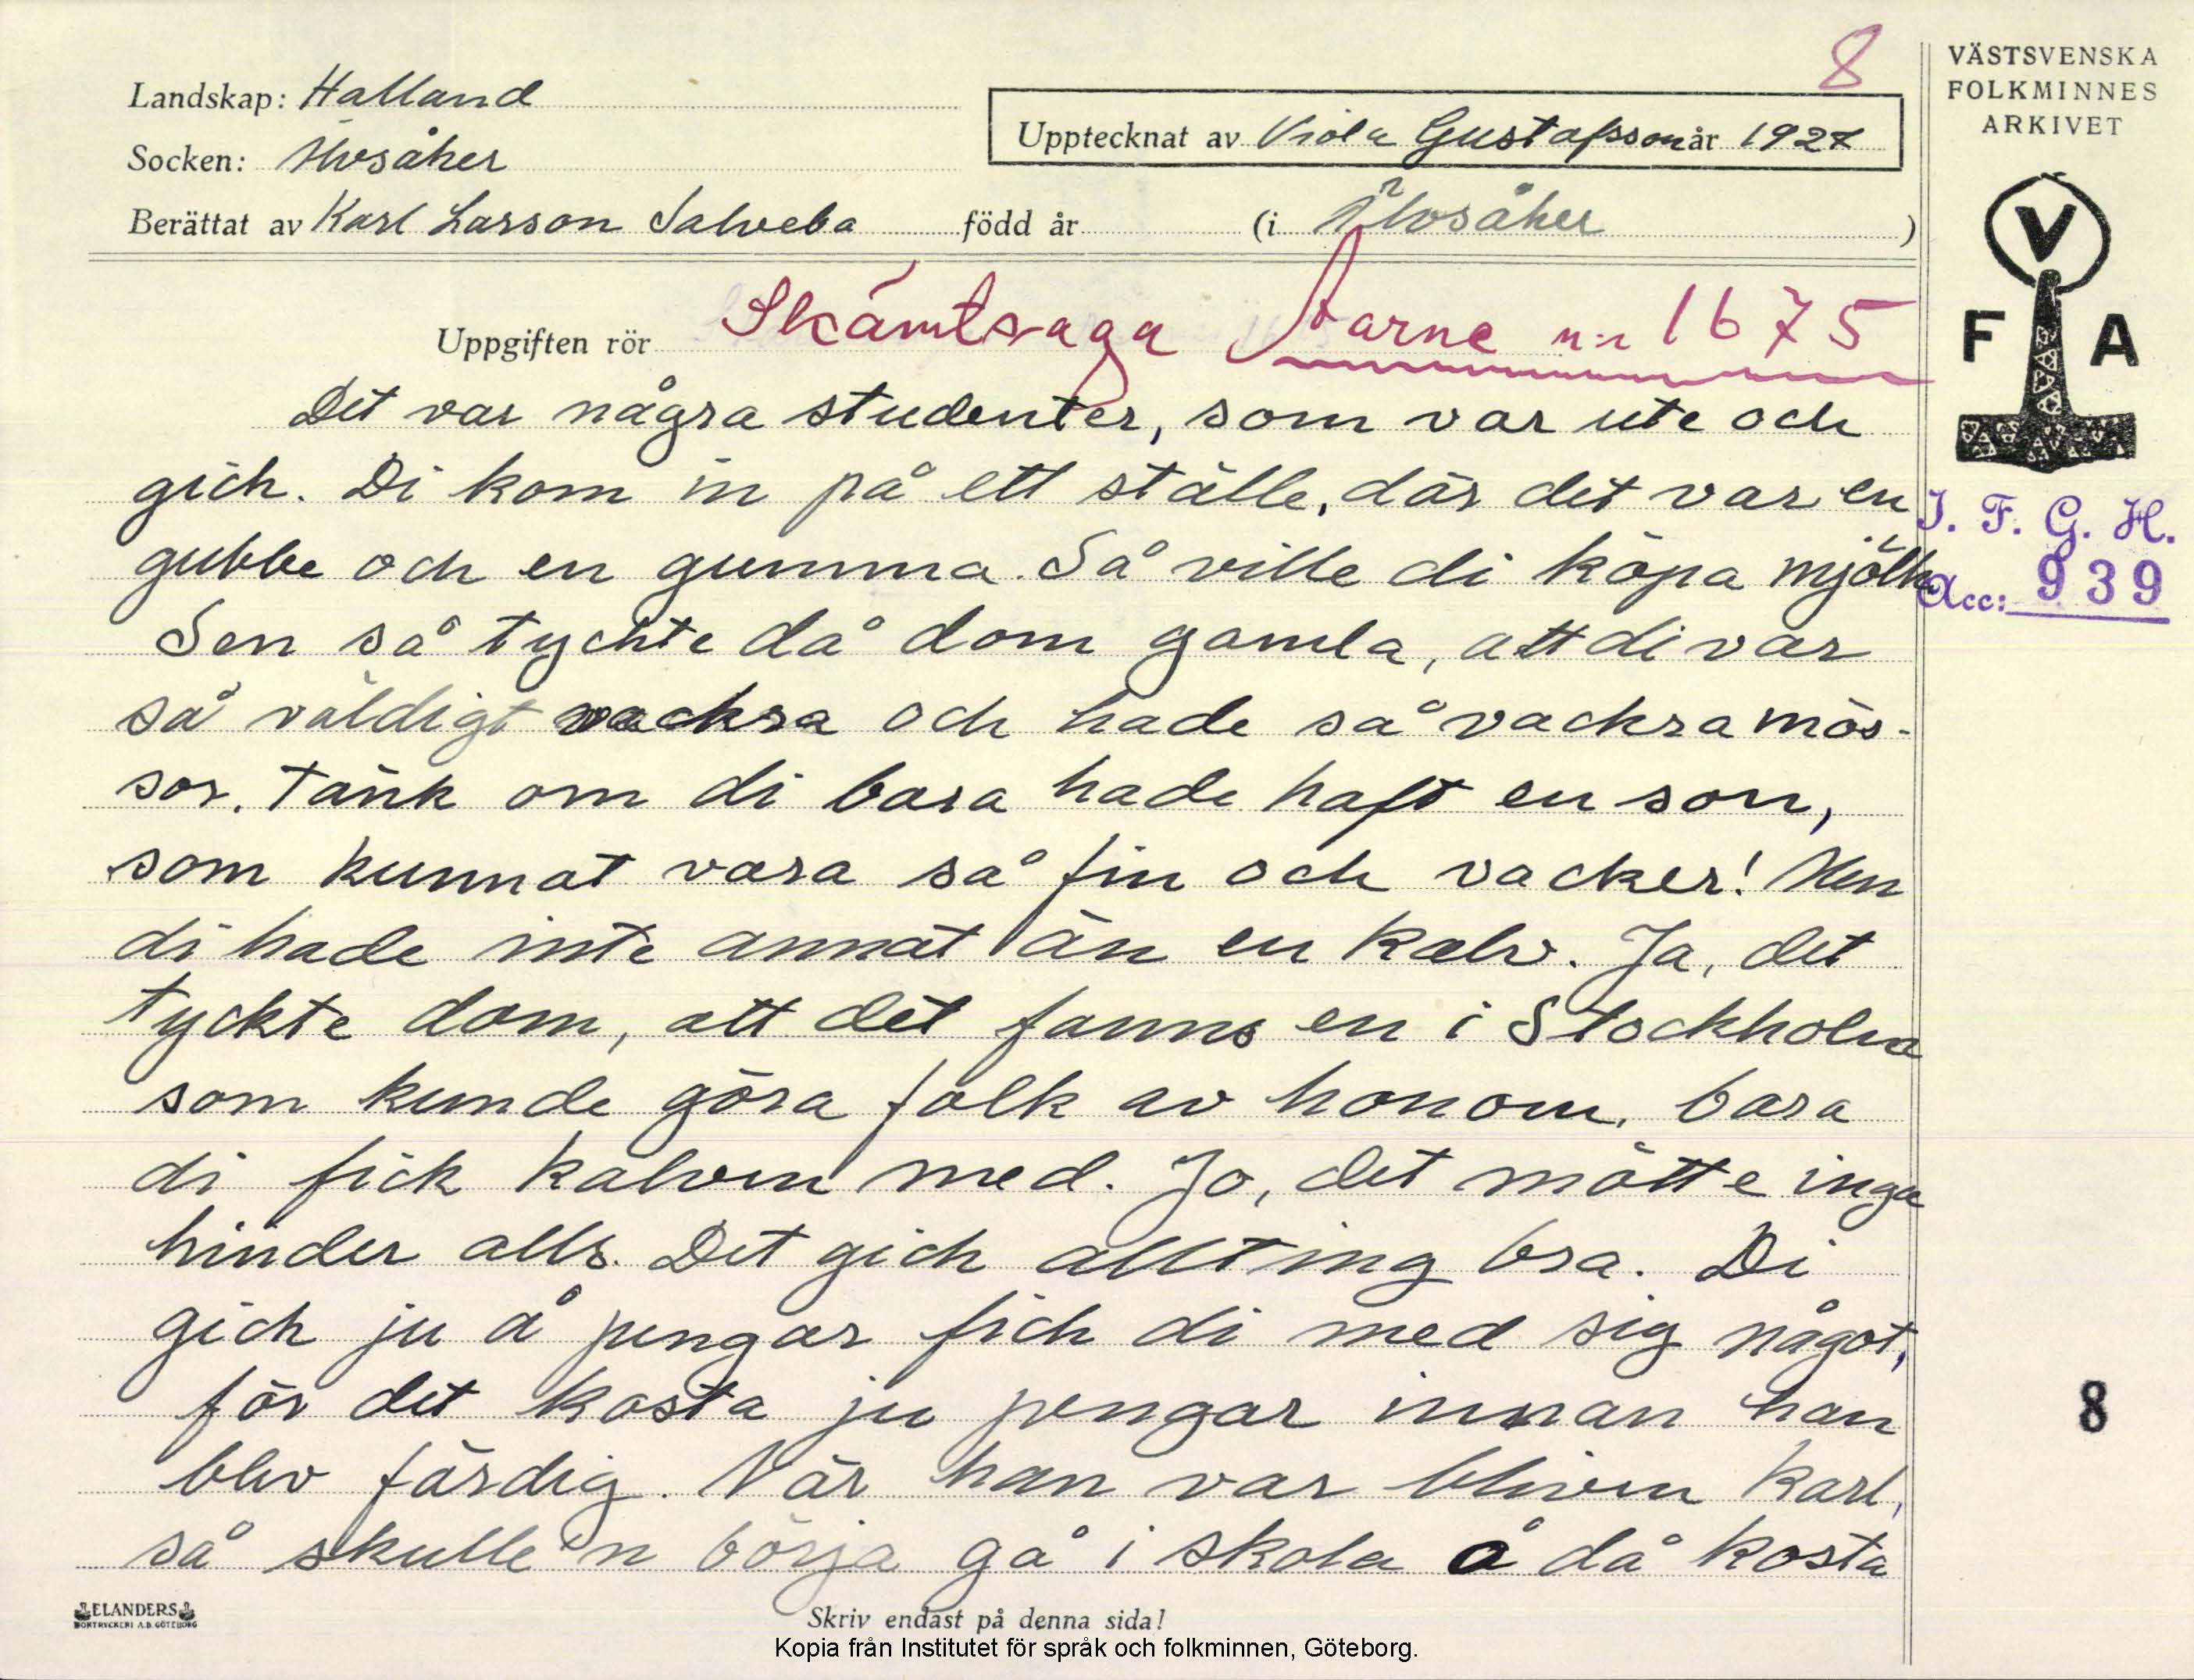 8
VÄSTSVENSKA
FOLKMINNES
ARKIVET
Landskap: Halland
Socken: Älvsåker
Upptecknat av Viola Gustafsson år 1927
Berättat av Karl Larson Salveba född år (i Älvsåker)
V
F A
Uppgiften rör Skämtsaga Aarne nr 1675
I. F. G. H.
Acc: 939
Det var några studenter, som var ute och
gick. Di kom in på ett ställe, där det var en
gubbe och en gumma. Så ville di köpa mjölk
Sen så tyckte då dom gamla, att di var
så väldigt vackra och hade så vackra mös-
sor. Tänk om di bara hade haft en son,
som kunnat vara så fin och vacker! Men
di hade inte annat än en kalv. Ja, det
tyckte dom, att det fanns en i Stockholm
som kunde göra folk av honom, bara
di fick kalven med. Jo, det mötte inga
hinder alls. Det gick allting bra. Di
gick ju å pengar fick di med sig något,
för det kosta ju pengar innan han
blev färdig. När han var bliven karl,
så skulle'n börja gå i skola å då kosta
8
ELANDERS
BOKTRYCKERI A.B. GÖTEBORG
Skriv endast på denna sida!
Kopia från Institutet för språk och folkminnen, Göteborg.